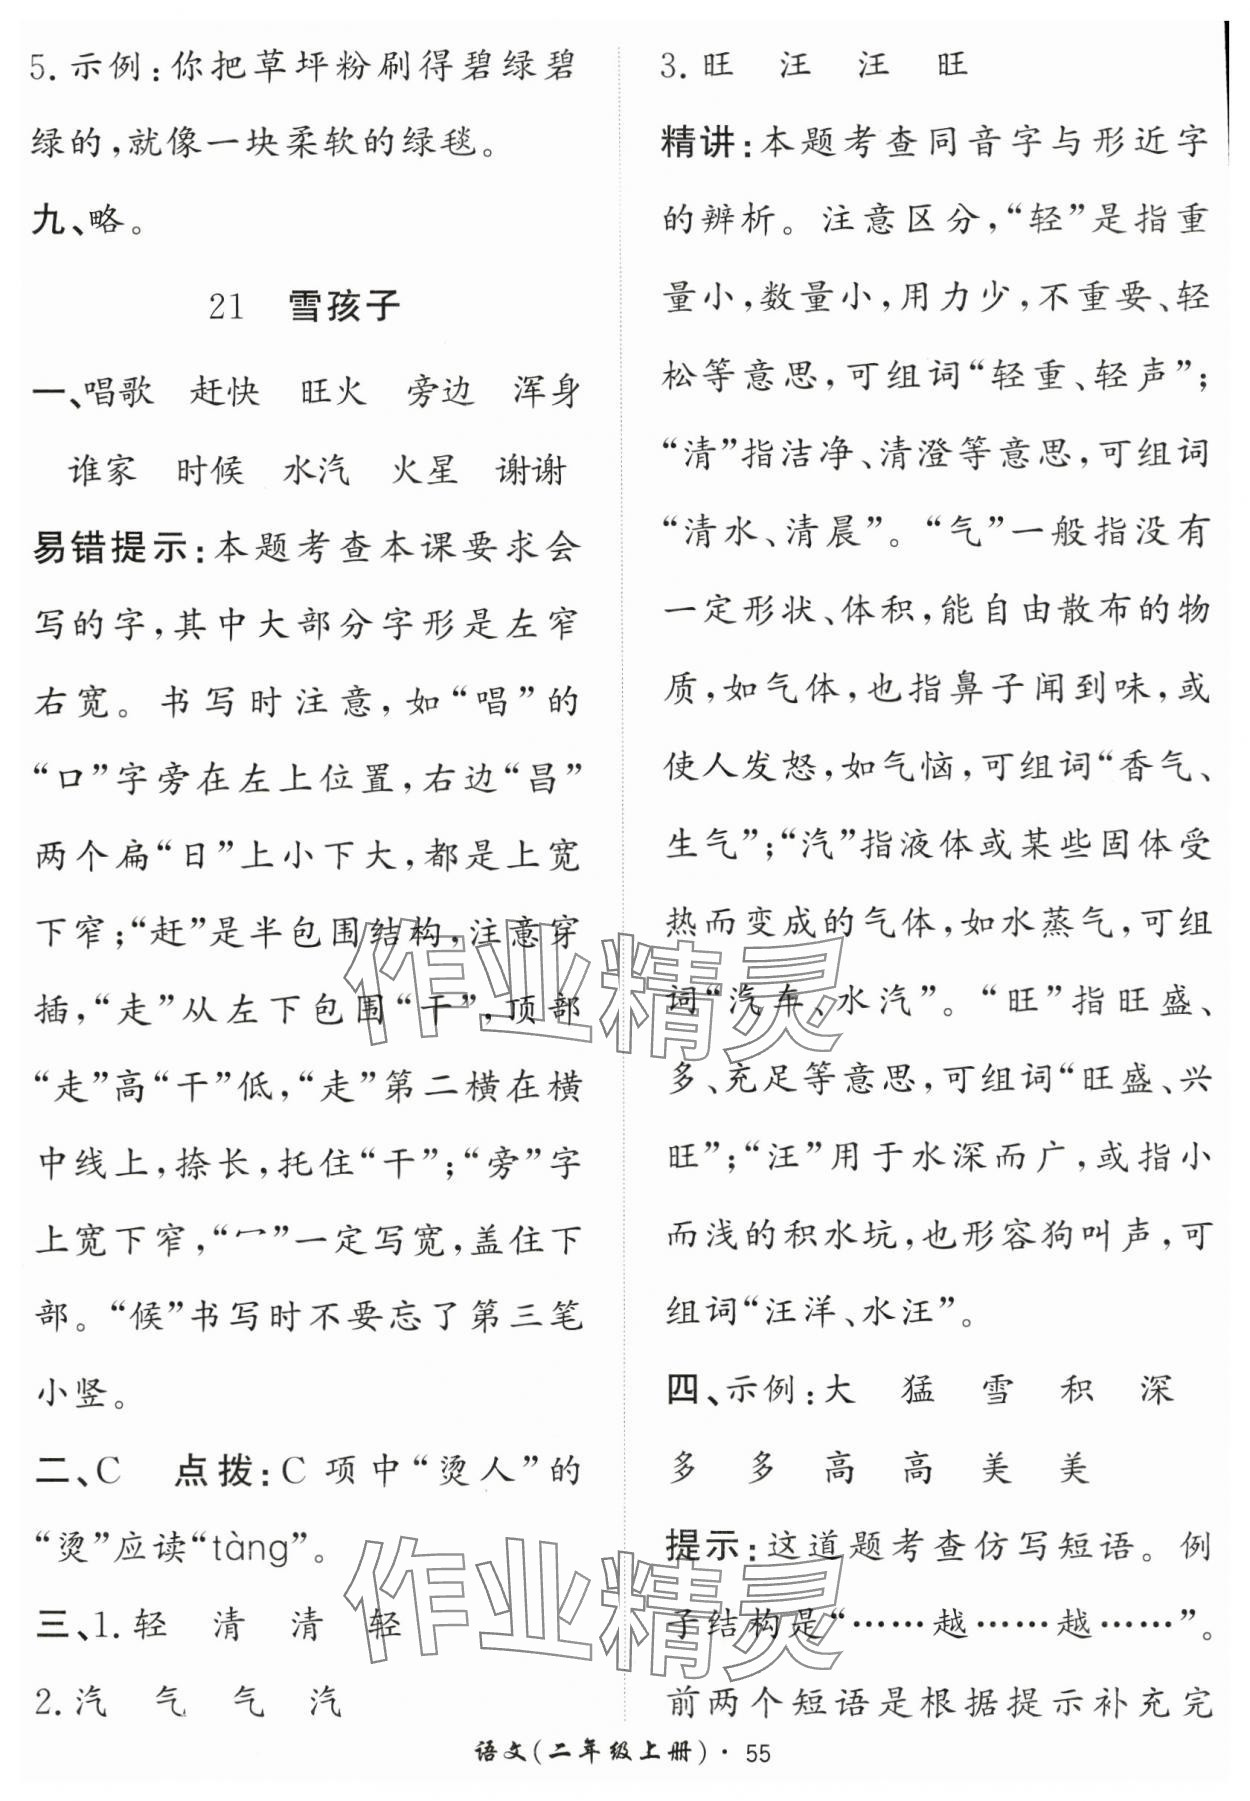 5. 示例:你把草坪粉刷得碧绿碧
绿的,就像一块柔软的绿毯。
九、略。
21 雪孩子
一、唱歌 赶快 旺火 旁边 浑身
谁家 时候 水汽 火星 谢谢
易错提示:本题考查本课要求会
写的字,其中大部分字形是左窄
右宽。书写时注意,如“唱”的
“口”字旁在左上位置,右边“昌”
两个扁“日”上小下大,都是上宽
下窄;“赶”是半包围结构,注意穿
插,“走”从左下包围“干”,顶部
“走”高“干”低,“走”第二横在横
中线上,捺长,托住“干”;“旁”字
上宽下窄,“冖”一定写宽,盖住下
部。“候”书写时不要忘了第三笔
小竖。
二、C 点拨:C 项中“烫人”的
“烫”应读“tàng”。
三、1. 轻 清 清 轻
2. 汽 气 气 汽
3. 旺 汪 汪 旺
精讲:本题考查同音字与形近字
的辨析。注意区分,“轻”是指重
量小,数量小,用力少,不重要、轻
松等意思,可组词“轻重、轻声”;
“清”指洁净、清澄等意思,可组词
“清水、清晨”。“气”一般指没有
一定形状、体积,能自由散布的物
质,如气体,也指鼻子闻到味,或
使人发怒,如气恼,可组词“香气、
生气”;“汽”指液体或某些固体受
热而变成的气体,如水蒸气,可组
词“汽车、水汽”。“旺”指旺盛、
多、充足等意思,可组词“旺盛、兴
旺”;“汪”用于水深而广,或指小
而浅的积水坑,也形容狗叫声,可
组词“汪洋、水汪”。
四、示例:大 猛 雪 积 深
多 多 高 高 美 美
提示:这道题考查仿写短语。例
子结构是“……越……越……”。
前两个短语是根据提示补充完
作业精灵
作业精灵
语文(二年级上册)·55